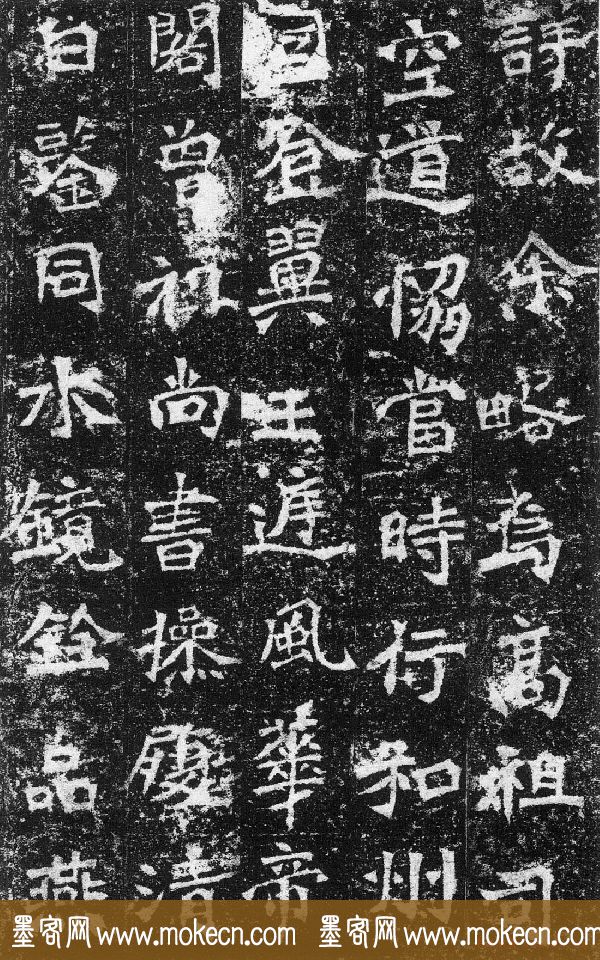 詳故余略焉高祖司
空道恊當時行和州
登翼王遊風華帝
閣曾祖尚書操履清
白鑒同水鏡銓品燕
墨客网 www.mokecn.com 墨客网 www.mokecn.com